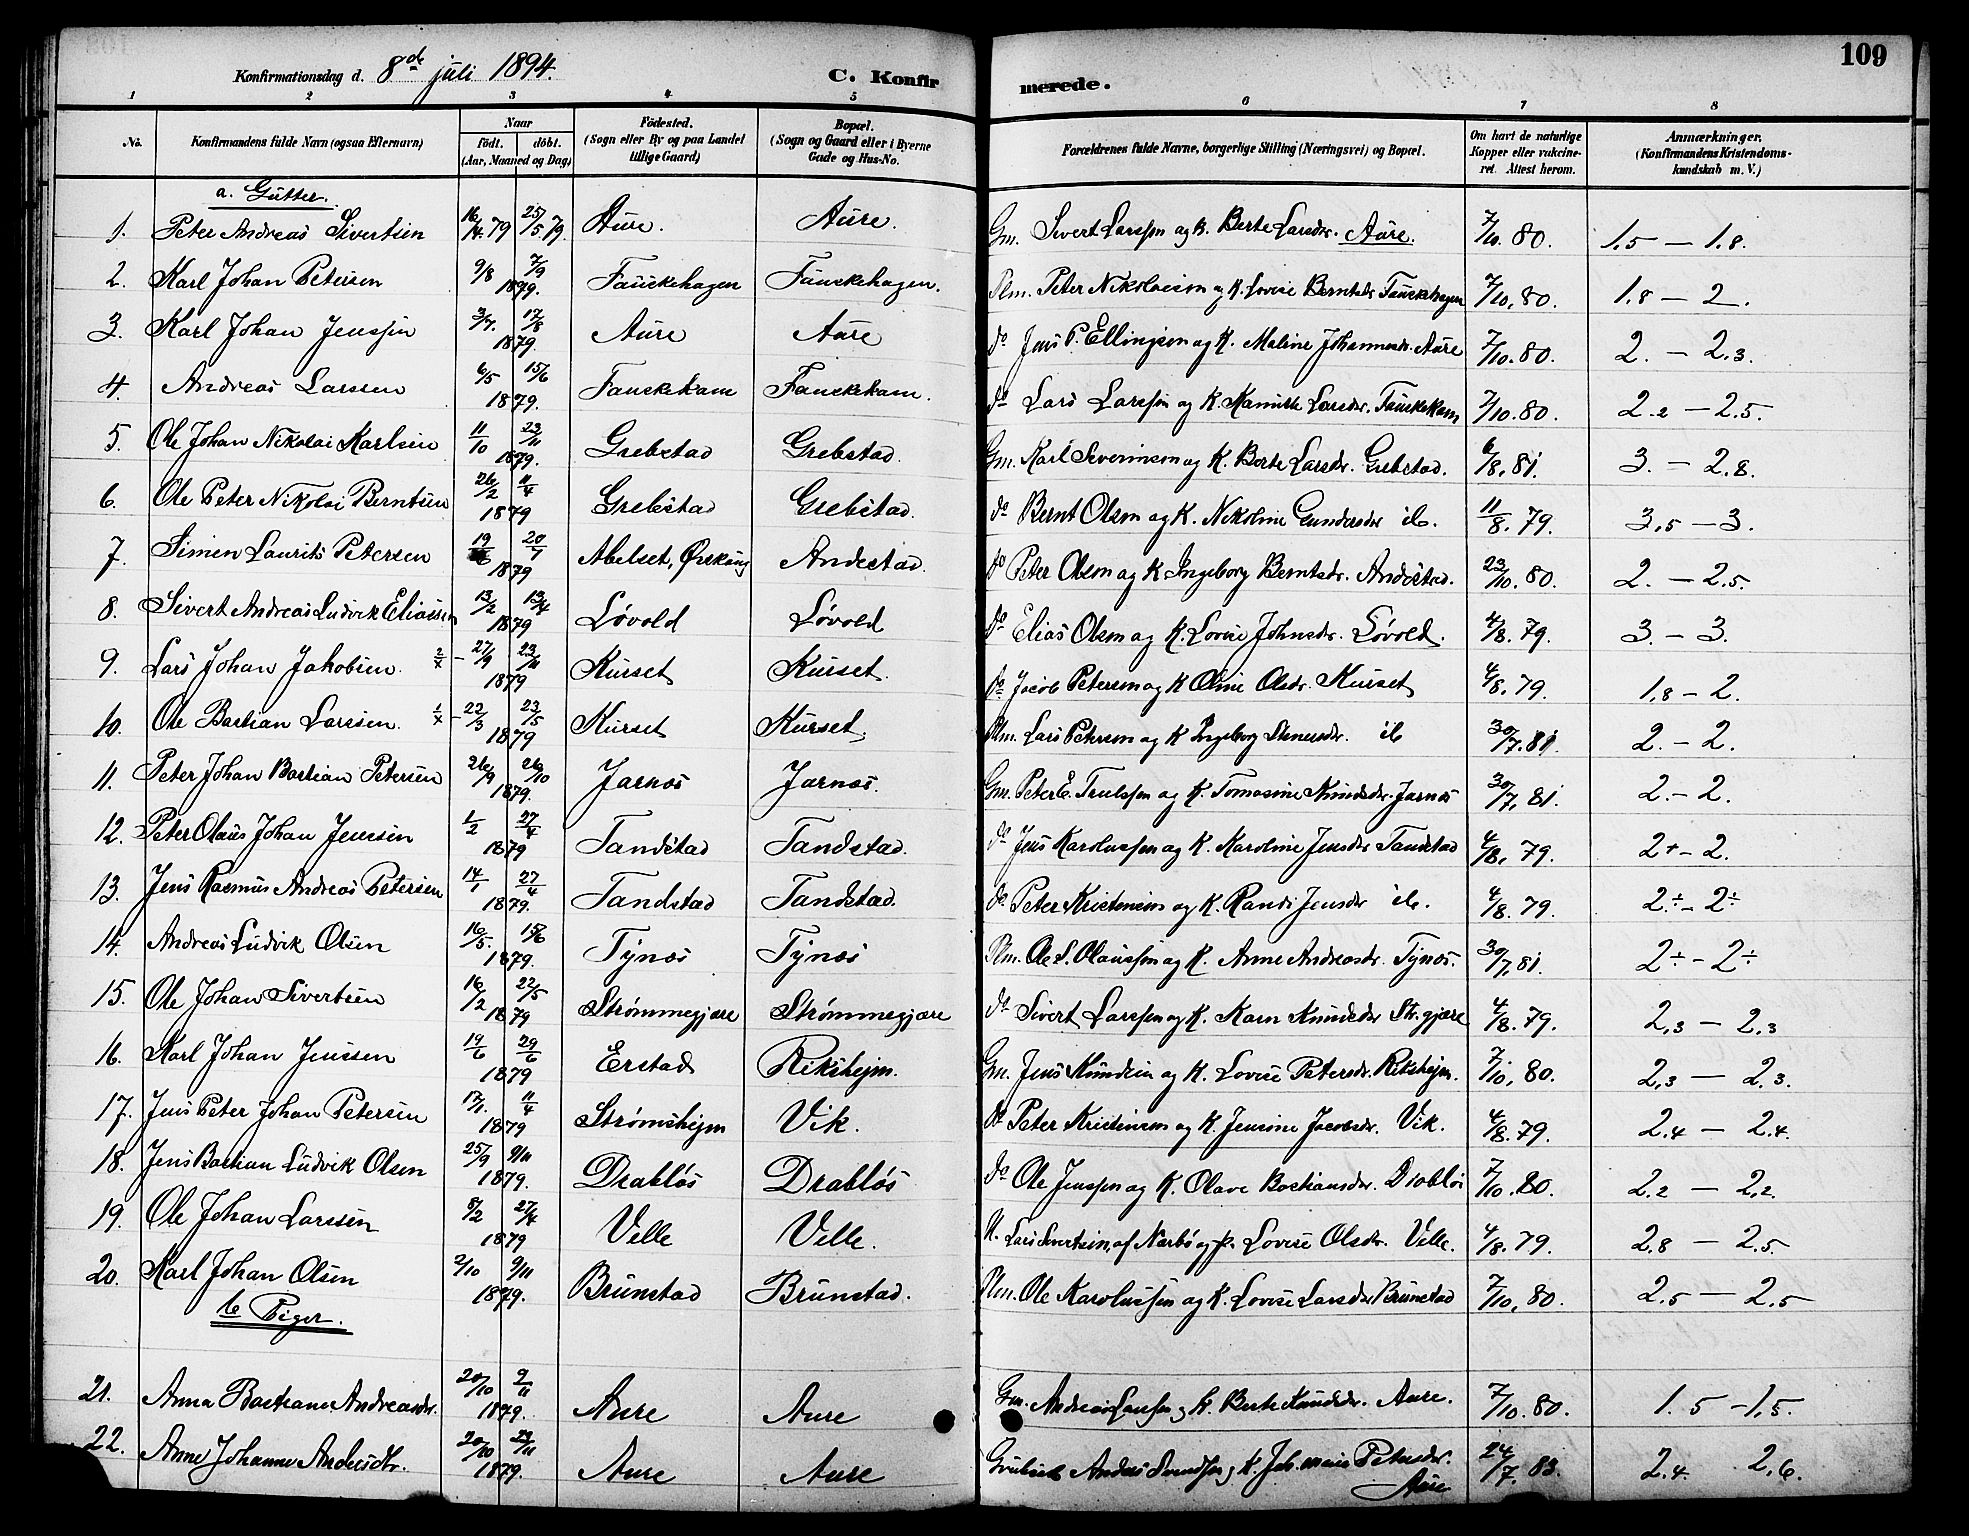 109
Konfirmationsdag d. 8de juli 1894. C. Konfirmerede.
1 2 3 4 5 6 7 8
No. Konfirmandens fulde Navn (ogsaa Efternavn) Naar födt. döbt. (Aar, Maaned og Dag) Födested. (Sogn eller By og paa Landet tillige Gaard) Bopæl. (Sogn og Gaard eller i Byerne Gade og Hus-No. Forældrenes fulde Navne, borgerlige Stilling (Næringsvei) og Bopæl. Om havt de naturlige Kopper eller vakcineret. Attest herom. Anmærkninger. (Konfirmandens Kristendomskundskab m. V.)
a. Gutter.
1. Peter Andreas Sivertsen 16/4.79 25/5 79. Aure. Aure. Gm. Sivert Larssen og K. Berte Larsdr. Aure. 7/10. 80. 1,5 — 1.8.
2. Karl Johan Petersen 9/8 7/9 1879. Fauskehagen Fauskehagen. Plm. Peter Nikolaisen og K. Lovise Berntsdr Fauskehagen 7/10, 80. 1,8 — 2.
3. Karl Johan Jenssen 3/7. 17/8 1879. Aure Aure do Jens P. Ellingsen og K. Maline Johannesdr. Aure 7/10. 80. 2. — 2,3.
4. Andreas Larssen 6/5 15/6 1879. Fauskekam Fauskekam. do Lars Larssen og K. Larsdr. Fauskekam 7/10. 80. 2.2 — 2.5.
5. Ole Johan Nikolai Karlsen 11/10 23/11 1879. Grebstad Grebstad. Gm. Karl Severinsen og K. Berte Larsdr. Grebstad. 6/8, 81. 3. — 2,8.
6. Ole Peter Nikolai Berntsen 26/2 11/4 1879 Grebstad Grebstad. do Bernt Olsen og K. Nikoline Gundersdr ib. 11/8. 79. 3,5 — 3.
7. Simen Laurits Petersen 19/6 20/7 1879 Abelset, Ørskoug Andestad. do Peter Olsen og K Ingeborg Berntsdr. Andestad. 23/10. 80. 2. — 2.5.
8. Sivert Andreas Ludvik Eliassen 13/2 13/4 1879 Løvold Løvold do Elias Olsen og K. Lovise Johnsdr. Løvold. 4/8. 79. 3. — 3.
9. Lars Johan Jakobsen. 2/x — 27/9 23/11 1879 Kurset Kurset. do Jacob Petersen og K Oline Olsdr. Kurset 4/8. 79. 1,8 — 2.
10. Ole Bastian Larssen. 1/x — 22/3 23/5 1879 Kurset Kurset. Plm. Lars Petersen og K Ingeborg ib 30/7. 81. 2. — 2.
11. Peter Johan Bastian Petersen 26/9 26/10 1879. Jarnes Jarnes. Gm. Peter E. Trulssen og K. Tomasine Knudsdr. Jarnes 30/7, 81. 2. — 2.
12. Peter Olaus Johan Jenssen 1/2 27/4 1879 Tandstad Tandstad. do Jens Karolussen og K. Karoline Jensdr Tandstad 4/8, 79. 2+ — 2.
13. Jens Rasmus Andreas Petersen 14/1 27/4 1879. Tandstad Tandstad. do Peter Kristensen og K. Randi Jensdr ib. 4/8. 79. 2÷ — 2÷
14. Andreas Ludvik Olsen 16/5. 15/6 1879. Tynes Tynes Plm. Ole S. Olaussen og K. Anne Andreasdr. Tynes. 30/7, 81. 2÷ — 2÷
15. Ole Johan Sivertsen 16/2 22/5 1879 Strømmegjære Strømmegjære do Sivert Larssen og K. Karn Knudsdr Str.gjære 4/8. 79. 2,3 — 2,3
16. Karl Johan Jenssen 19/6 29/6 1879 Erstad Rekshejm. Gm. Jens Knudsen og K. Lovise Petersdr. Rekshejm. 7/10, 80. 2,3 — 2.3.
17. Jens Peter Johan Petersen 13/1. 11/4 1879 Strømshejm Vik. do Peter Kristensen og K. Jensine Jacobsdr. Vik. 4/8. 79. 2.4 — 2.4.
18. Jens Bastian Ludvik Olsen 25/9 9/11 1879. Drabløs Drabløs do Ole Jenssen og K. Olave Bastiansdr. Drabløs 7/10. 80. 2.2 — 2,2.
19. Ole Johan Larssen 8/2 27/4 1879 Velle Velle. Lars Sivertsen, af Nærbø og p. Lovise Olsdr. Velle. 4/8. 79. 2,8 — 2.5.
20. Karl Johan Olsen 2/10 9/11 1879. Brunstad Brunstad. Plm. Ole Karolussen og K. Lovise Larsdr Brunstad 7/10, 80. 2.5 — 2.5
b Piger.
21. Anna Bastiane Andreasdr. 20/10 9/11 1879. Aure Aure Gm. Andreas Larssen og K. Berte Knudsdr. Aure. 7/10. 80. 1.5 — 1,5.
22. Anne Johanne Andersdtr. 20/10 23/11 1879. Aure Aure Anders Svendsen og K. Petersdr. Aure 24/7. 83. 2.4. 2,6.